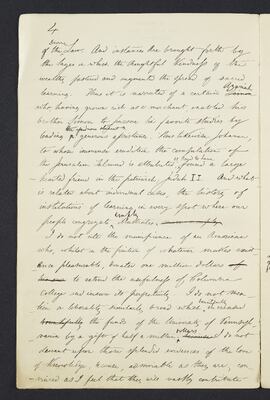 4
of the Law. And instances are brought forth by
the sages in which the thoughtful kindness of the
wealthy fostered and augmented the spread of sacred
learning. Thus it is narrated of a certain Azariah
who, having grown rich as a merchant enabled his
brother Simon to pursue his favorite studies by
lending generous assistance. Thus likewise Johanan,
to whose immense erudition the compilation of
the Jerusalem Talmud is attributed, found a large
hearted friend in the patriarch, Judah II. And what
is related about individual cases, the history of
institutions of learning in every spot where our
people congregate amply illustrates
I do not cite the munificence of an Americana
who, whilst in the position of whatever makes exist
ence pleasurable, donates one million dollars of
to extend the usefulness of Columbia
College and insure its perpetuity. I do not men
tion a liberality similarly broad which increased
the funds of the University of Pennsyl
vania by a gift of half a million. I do not
descant upon those splendid evidences of the love
of knowledge, because, admirable as they are, con
vinced as I feel that they will vastly contribute